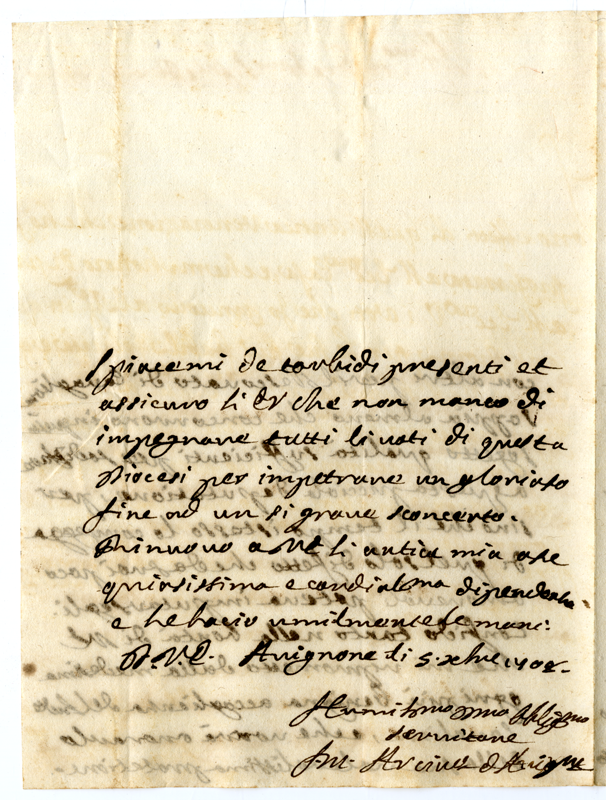 Spiacemi de torbidi presenti et
assicuro li che non manco di
impegnare tutti li voti di questa
Diocesi per impetrare un glorioso
fine ad un si grave sconcerto.
Rinuovo a VE li antica mia osse
quiosissima e cordialma dipendenza
e le bacio umilmente le mani.
D.V.E. Avignone di 5. xbre 1708.
Humilmo Obligmo
servitore
Arcives d'Avigne